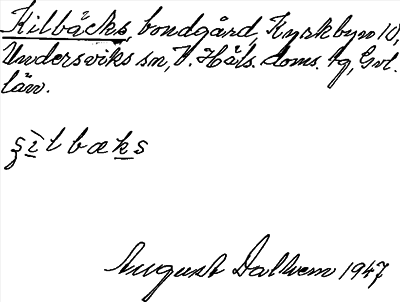 Kilbäcks, bondgård, Kyrkbyn 10,
Undersviks sn, V. Häls. doms. tg, Gvl.
län.
ʂìlbæks
August Dalhem 1947